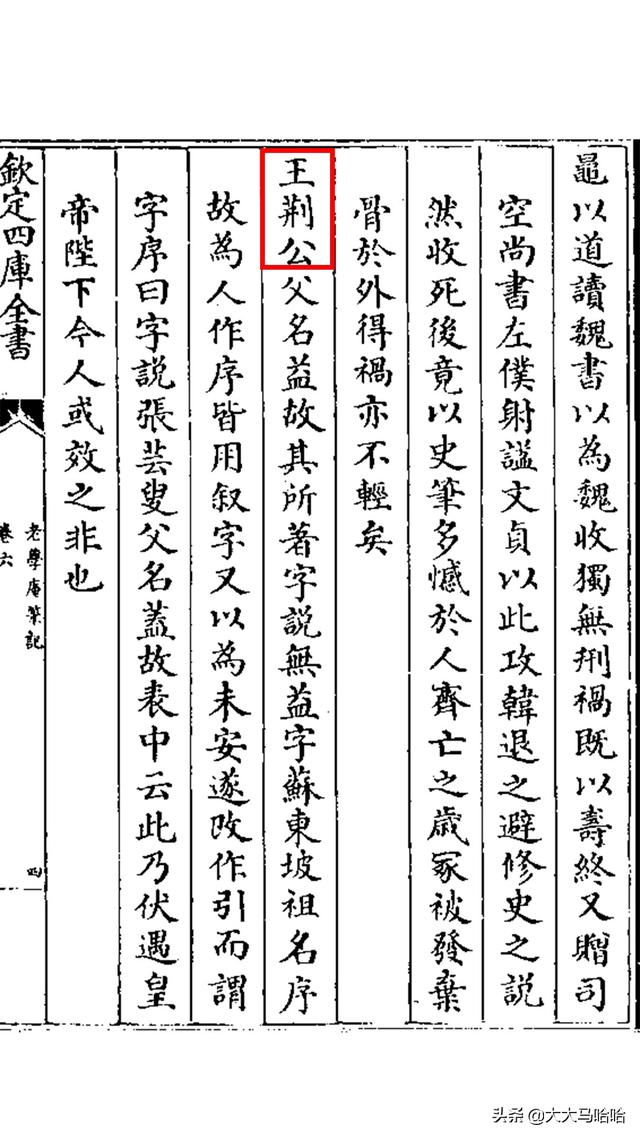 鼂以道讀魏書以為魏收獨無刑禍既以壽終又贈司
空尚書左僕射謚文貞以此攻韓退之避修史之說
然收死後竟以史筆多憾於人齊亡之歲冢被發棄
骨於外得禍亦不輕矣
王荆公父名益故其所著字說無益字蘇東坡祖名序
故為人作序皆用叙字又以為未安遂改作引而謂
字序曰字說張芸叟父名蓋故表中云此乃伏遇皇
帝陛下今人或效之非也
欽定四庫全書
老學庵筆記
卷六
四
头条 @大大马哈哈